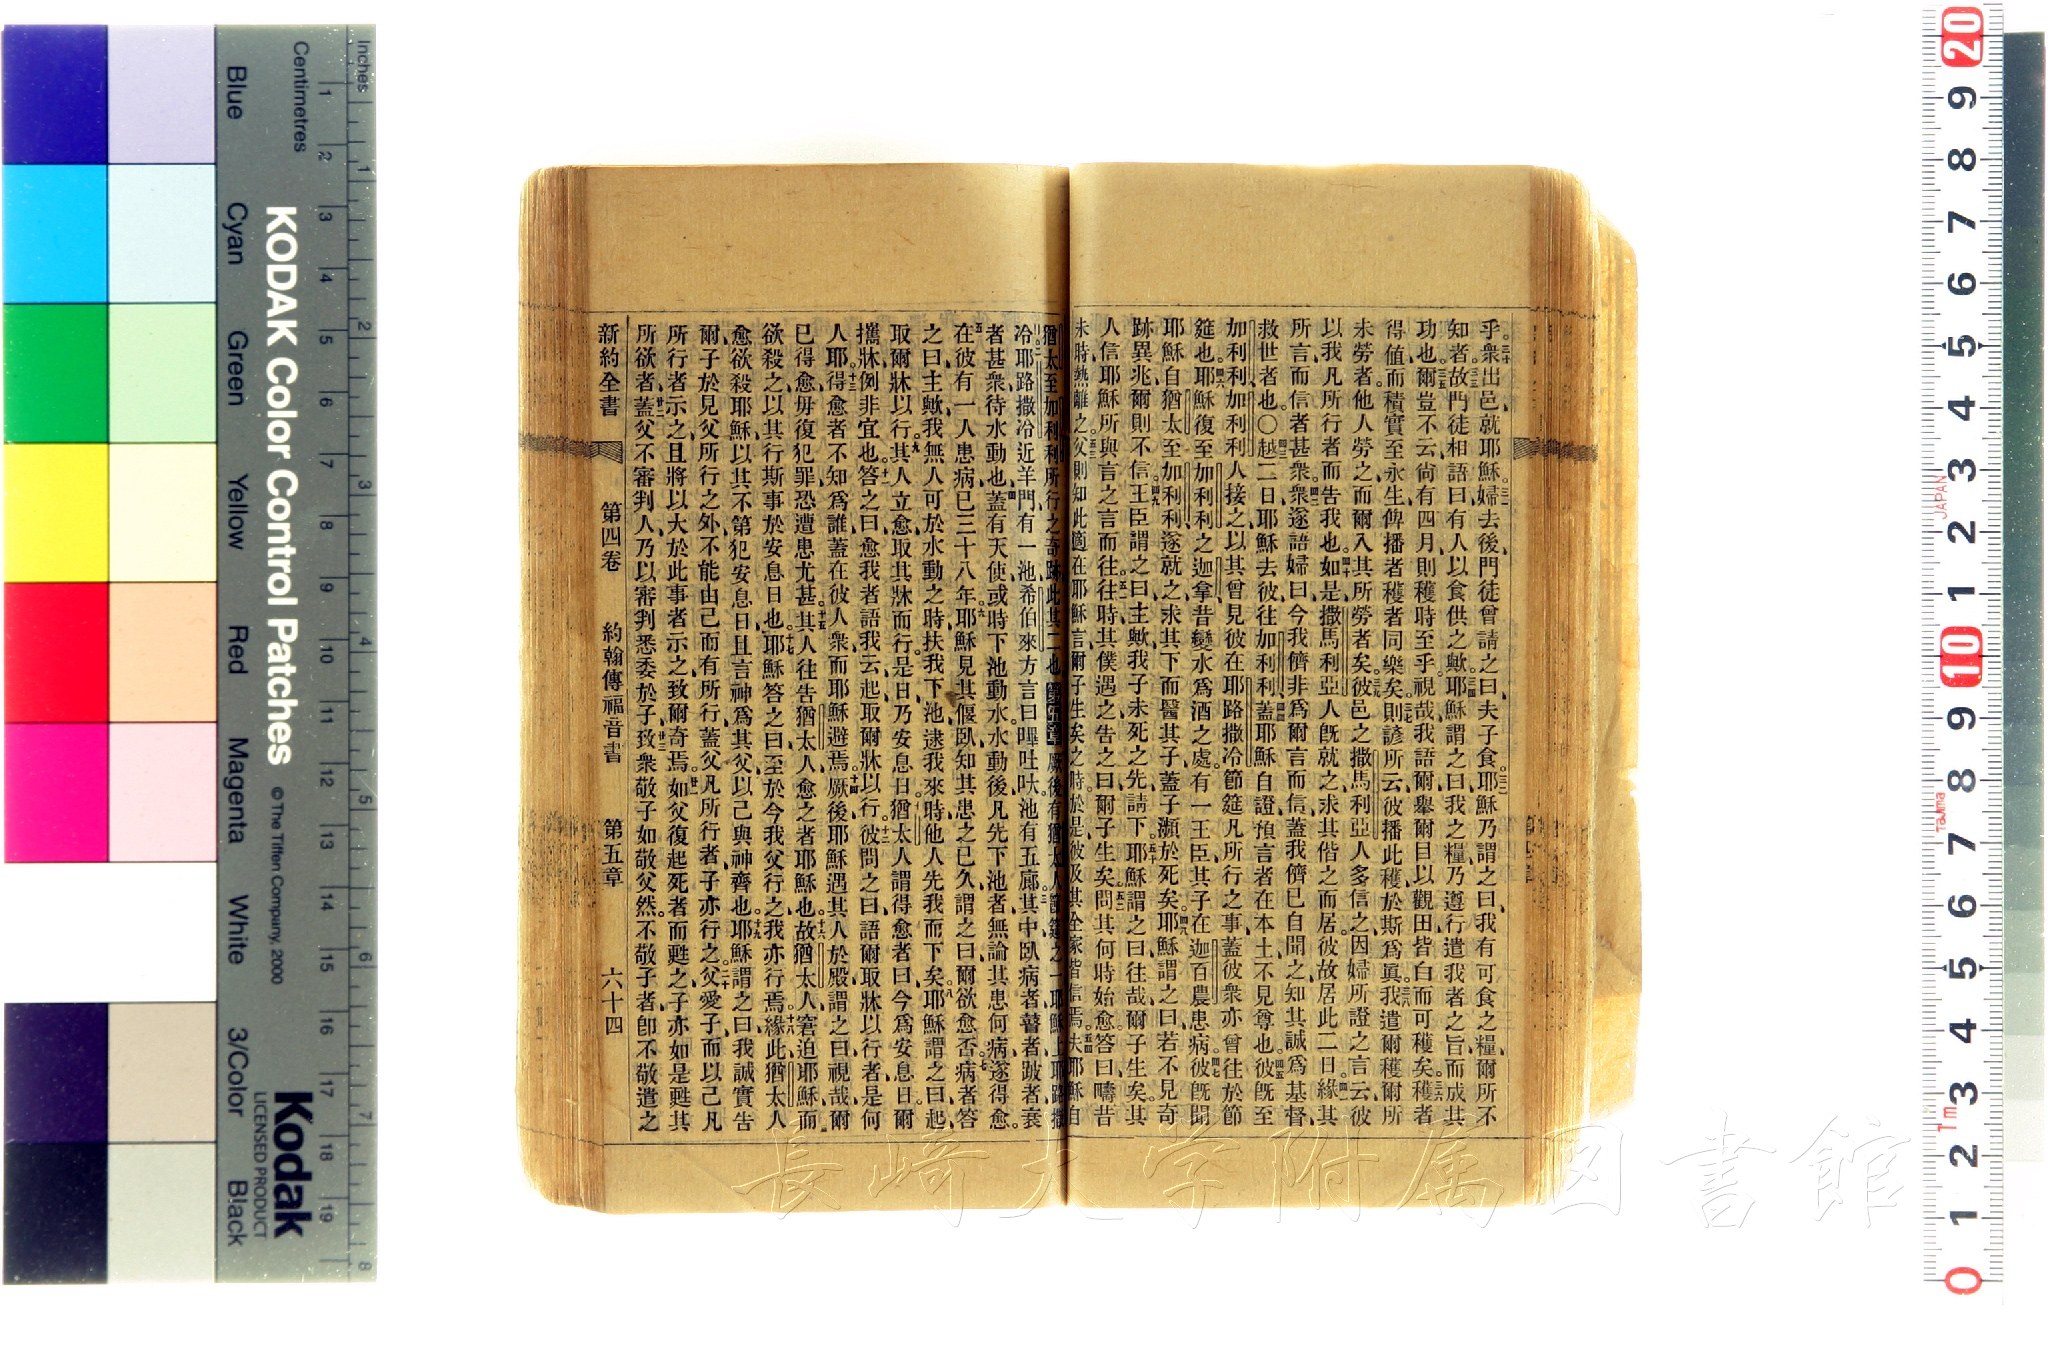 乎衆出邑就耶穌婦去後門徒曾請之曰夫子食耶穌乃謂之曰我有可食之糧爾所不
知者故門徒相語曰有人以食供之歟耶穌謂之曰我之糧乃遵行遣我者之旨而成其
功也爾豈不云尙有四月則穫時至乎視哉我語爾舉爾目以觀田皆白而可穫矣穫者
得値而積實至永生俾播者穫者同樂矣則諺所云彼播此穫於斯爲眞我遣爾穫爾所
未勞者他人勞之而爾入其所勞者矣彼邑之撒馬利亞人多信之因婦所證之言云彼
以我凡所行者而告我也如是撒馬利亞人旣就之求其偕之而居彼故居此二日緣其
所言而信者甚衆衆遂語婦曰今我儕非爲爾言而信蓋我儕已自聞之知其誠爲基督
救世者也〇越二日耶穌去彼往加利利蓋耶穌自證預言者在本土不見尊也彼旣至
加利利加利利人接之以其曾見彼在耶路撒冷節筵凡所行之事蓋彼衆亦曾往於節
筵也耶穌復至加利利之迦拿昔變水爲酒之處有一王臣其子在迦百農患病彼旣聞
耶穌自猶太至加利利遂就之求其下而醫其子蓋子瀕於死矣耶穌謂之曰若不見奇
跡異兆爾則不信王臣謂之曰主歟我子未死之先請下耶穌謂之曰往哉爾子生矣其
人信耶穌所與言之言而往往時其僕遇之告之曰爾子生矣問其何時始愈答曰疇昔
未時熱離之父則知此適在耶穌言爾子生矣之時於是彼及其全家皆信焉夫耶穌自
猶太至加利利所行之奇跡此其二也 第五章 厥後有猶太人節筵之一耶穌上耶路撒
冷耶路撒冷近羊門有一池希伯來方言曰嗶吐𠯈池有五廊其中臥病者瞽者跛者衰
者甚衆待水動也蓋有天使或時下池動水水動後凡先下池者無論其患何病遂得愈
在彼有一人患病已三十八年耶穌見其偃臥知其患之已久謂之曰爾欲愈否病者答
之曰主歟我無人可於水動之時扶我下池逮我來時他人先我而下矣耶穌謂之曰起
取爾牀以行其人立愈取其牀而行是日乃安息日猶太人謂得愈者曰今爲安息日爾
攜牀例非宜也答之曰愈我者語我云起取爾牀以行彼問之曰語爾取牀以行者是何
人耶得愈者不知爲誰蓋在彼人衆而耶穌避焉厥後耶穌遇其人於殿謂之曰視哉爾
已得愈毋復犯罪恐遭患尤甚其人往告猶太人愈之者耶穌也故猶太人窘迫耶穌而
欲殺之以其行斯事於安息日也耶穌答之曰至於今我父行之我亦行焉緣此猶太人
愈欲殺耶穌以其不第犯安息日且言神爲其父以己與神齊也耶穌謂之曰我誠實告
爾子於見父所行之外不能由己而有所行蓋父凡所行者子亦行之父愛子而以己凡
所行者示之且將以大於此事者示之致爾奇焉如父復起死者而甦之子亦如是甦其
所欲者蓋父不審判人乃以審判悉委於子致衆敬子如敬父然不敬子者卽不敬遣之
新約全書 第四卷 約翰傳福音書 第五章 六十四
KODAK Color Control Patches © The Tiffen Company, 2000
Kodak
LICENSED PRODUCT
Inches 1 2 3 4 5 6 7 8
Centimetres 1 2 3 4 5 6 7 8 9 10 11 12 13 14 15 16 17 18 19
Blue Cyan Green Yellow Red Magenta White 3/Color Black
20 9 8 7 6 5 4 3 2 1 10 9 8 7 6 5 4 3 2 1 0
JAPAN
Tajima
Tm
長崎大学附属図書館